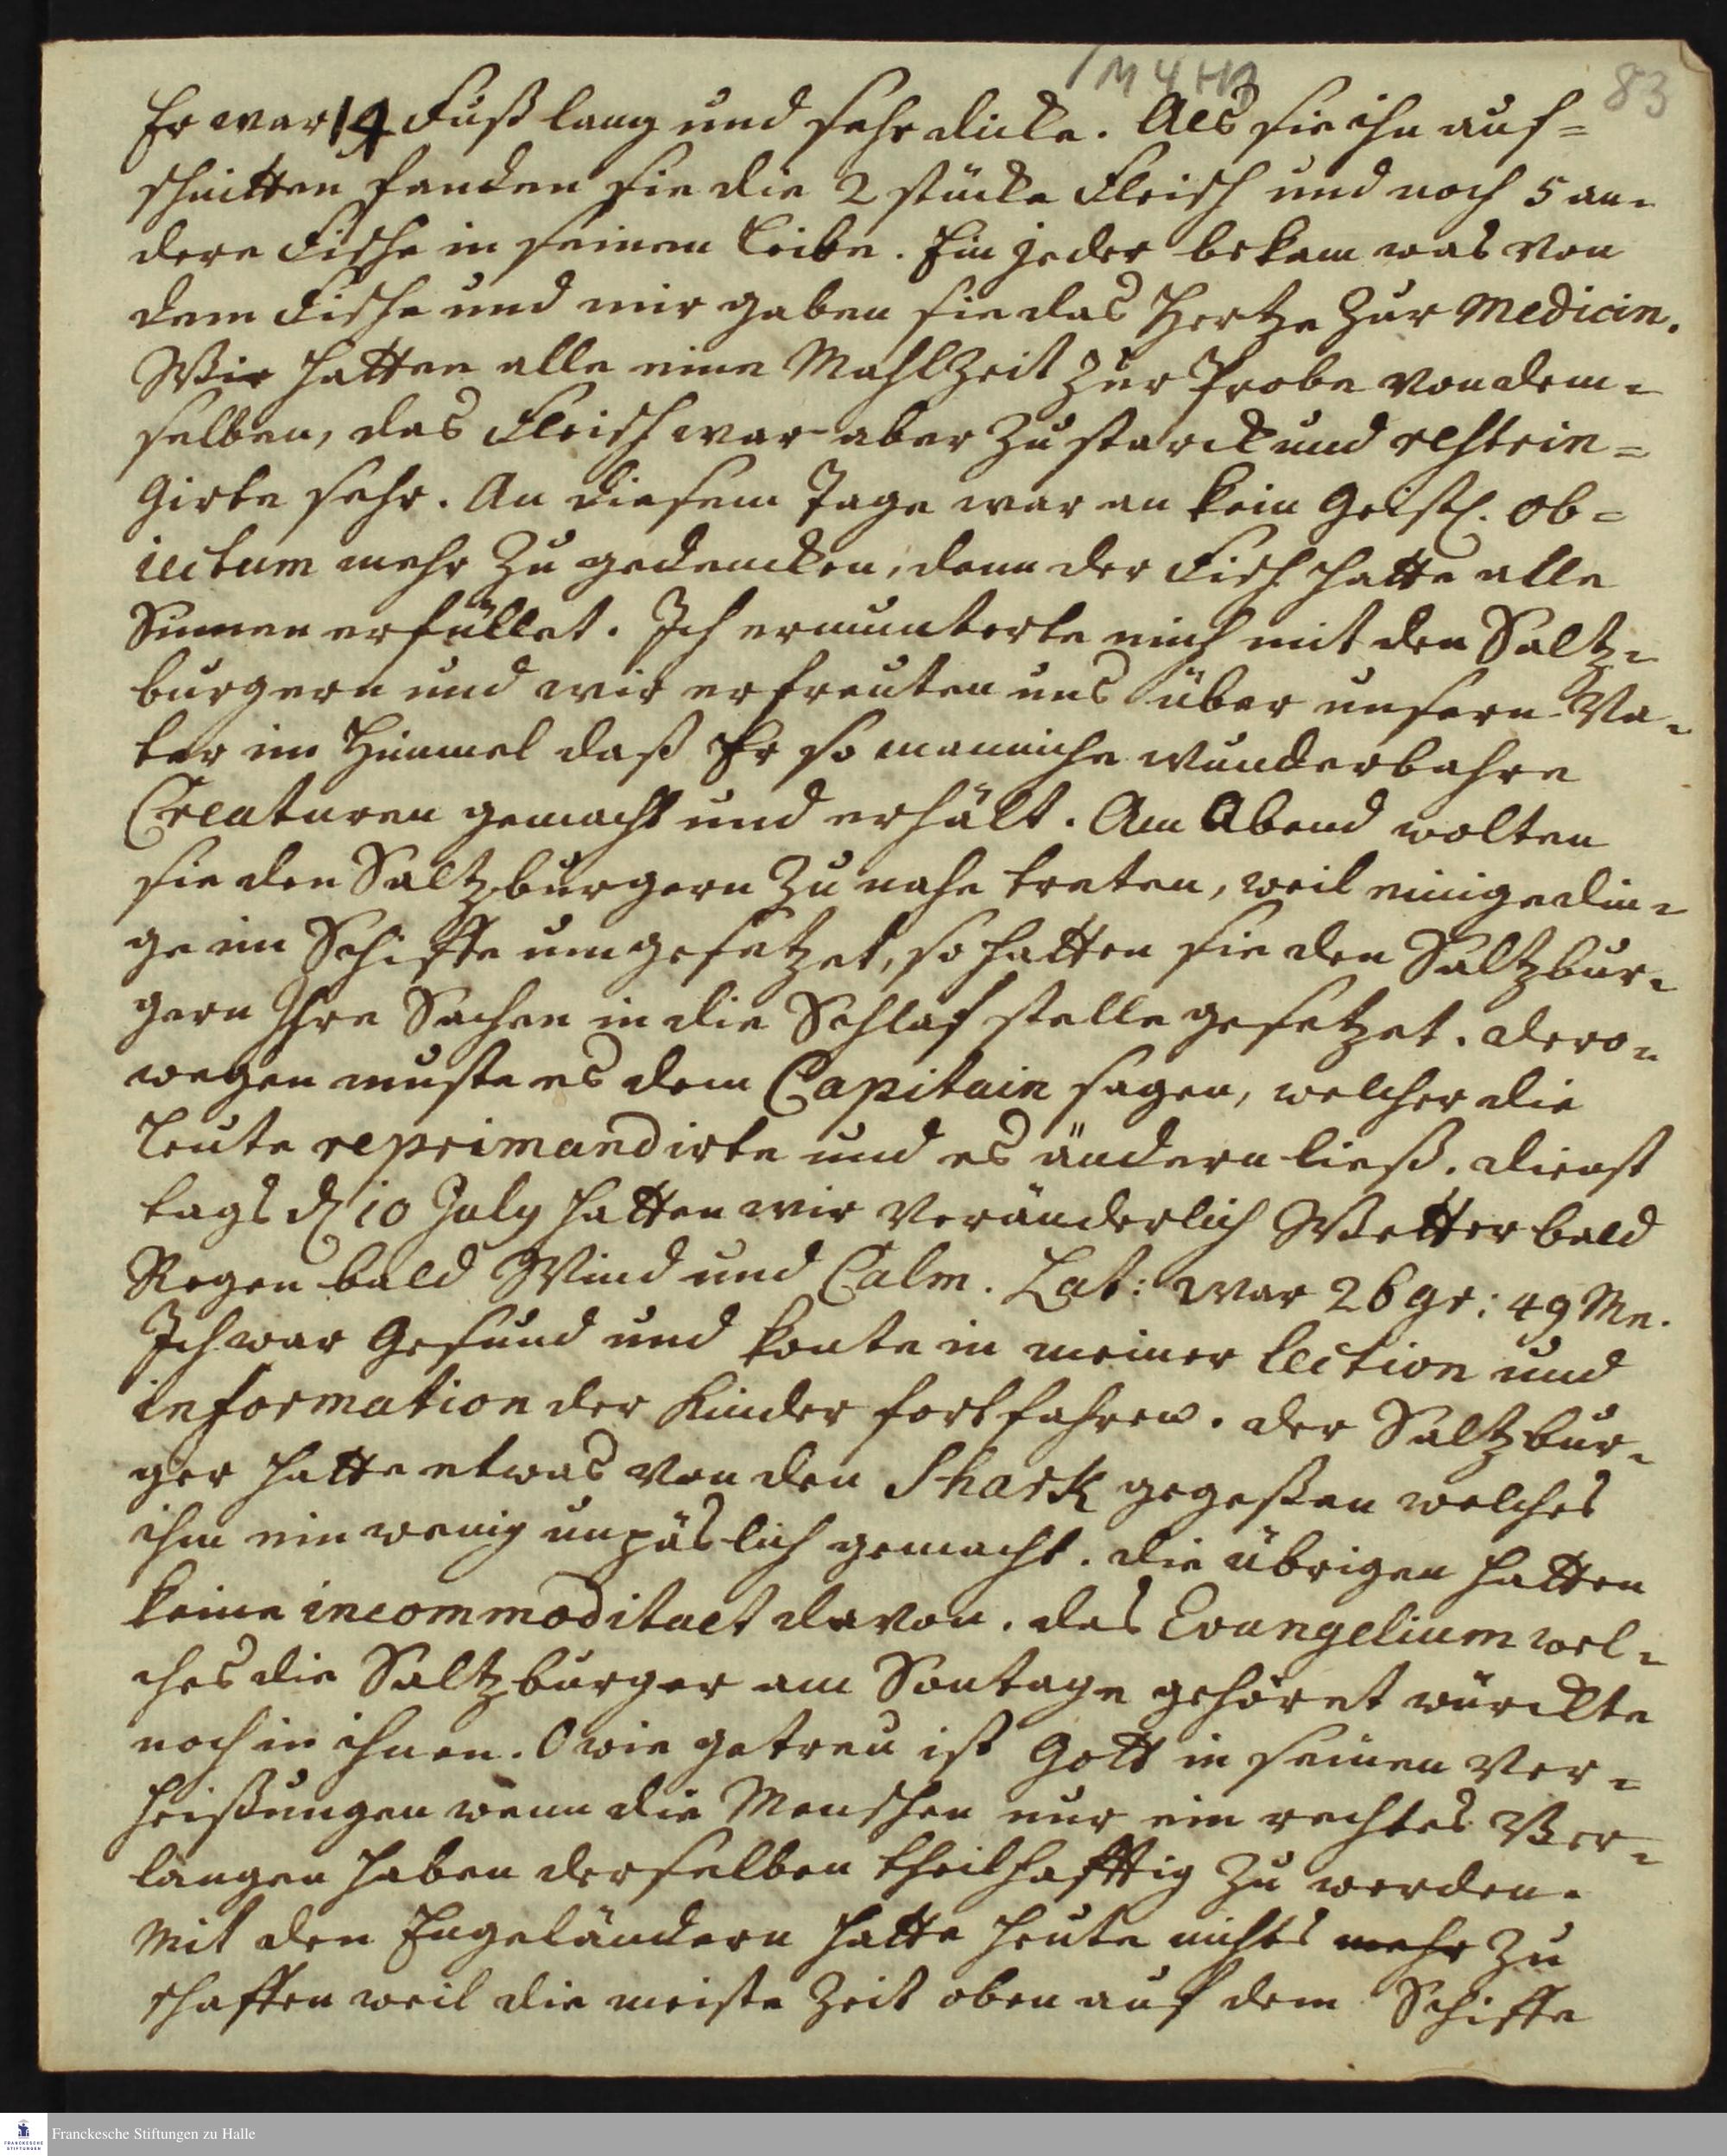 /M 4 H 13
83
Er war 14 Fuß lang und sehr dicke. Als sie ihn auf=
schnitten fanden sie die 2 stücke Fleisch und noch 5 an-
dere Fische in seinem Leibe. Ein jeder bekam was von
dem Fische und mir gaben sie das Hertze Zur Medicin.
Wir hatten alle eine MahlZeit Zur Probe von dem-
selben, das Fleisch war aber Zu starck und restrin=
girte sehr. An diesem Tage war an kein Geistl. Ob=
iectum mehr Zu gedencken, denn der Fisch hatte alle
Sinnen erfüllet. Ich ermunterte mich mit den Saltz-
burgern und wir erfreuten uns über unsern Va-
ter im Himmel daß Er so manniche wunderbahre
Creaturen gemacht und erhält. Am Abend wolten
sie den Saltzburgern Zu nahe treten, weil einige din-
ge im Schiffe umgesetzet, so hatten sie den Saltzbur-
gern Ihre Sachen in die Schlaf stelle gesetzet. dero-
wegen muste es dem Capitain sagen, welcher die
Leute reprimandirte und es ändern ließ. Dienst
tags d 10 July hatten wir Veränderlich Wetter bald
Regen bald Wind und Calm. Lat: war 26 gr: 49 Mn.
Ich war Gesund und konte in meiner lection und
information der Kinder fortfahren. der Saltzbur-
ger hatte etwas von den Shark gegeßen welches
ihm ein wenig unpäslich gemacht. die übrigen hatten
keine incommoditaet davon. das Evangelium wel-
ches die Saltzburger am Sontage gehöret würckte
noch in ihnen. O wie getreu ist Gott in seinen Ver-
heißungen wenn die Menschen nur ein rechtes Ver-
langen haben derselben theilhafftig Zu werden.
Mit den Engeländern hatte heute nichts mehr Zu
schaffen weil die meiste Zeit oben auf dem Schiffe
Franckesche Stiftungen zu Halle